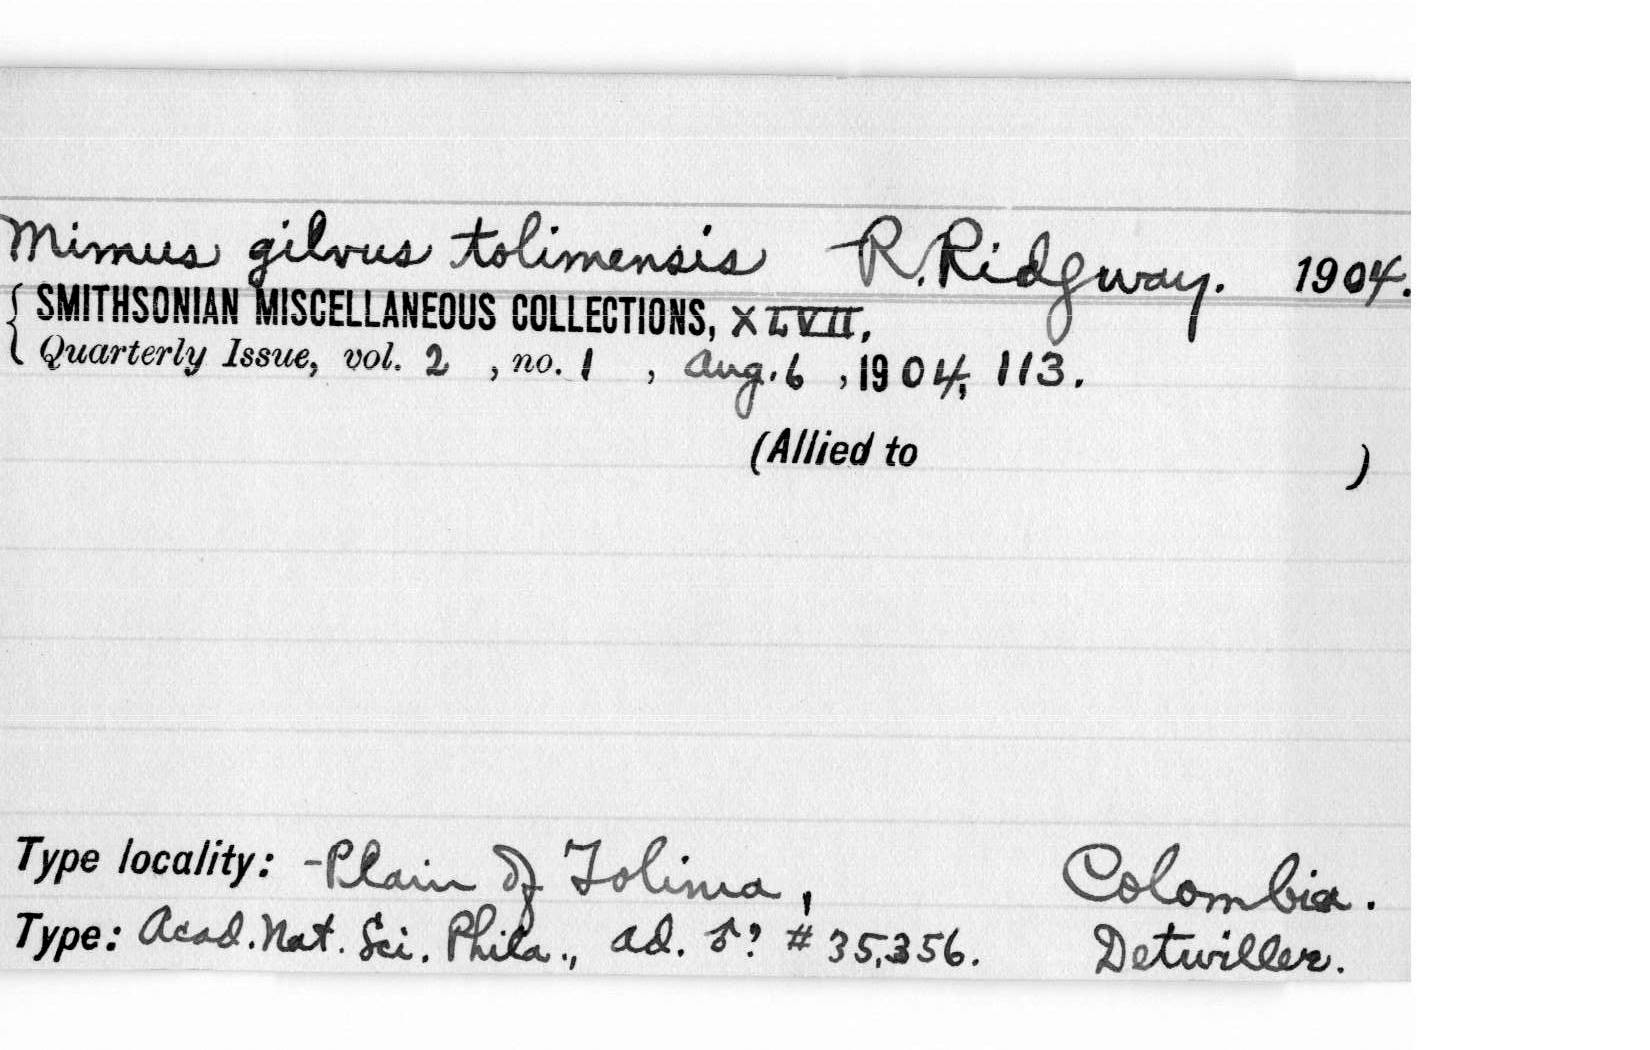 Mimus gilvus tolimensis R. Ridgway. 1904.
SMITHSONIAN MISCELLANEOUS COLLECTIONS, XLVII,
Quarterly Issue, vol. 2 , no. 1 , Aug. 6 , 1904, 113.
(Allied to )
Type locality: Plain of Tolima, Colombia.
Type: Acad. Nat. Sci. Phila., ad. ♂? # 35,356. Detwiller.